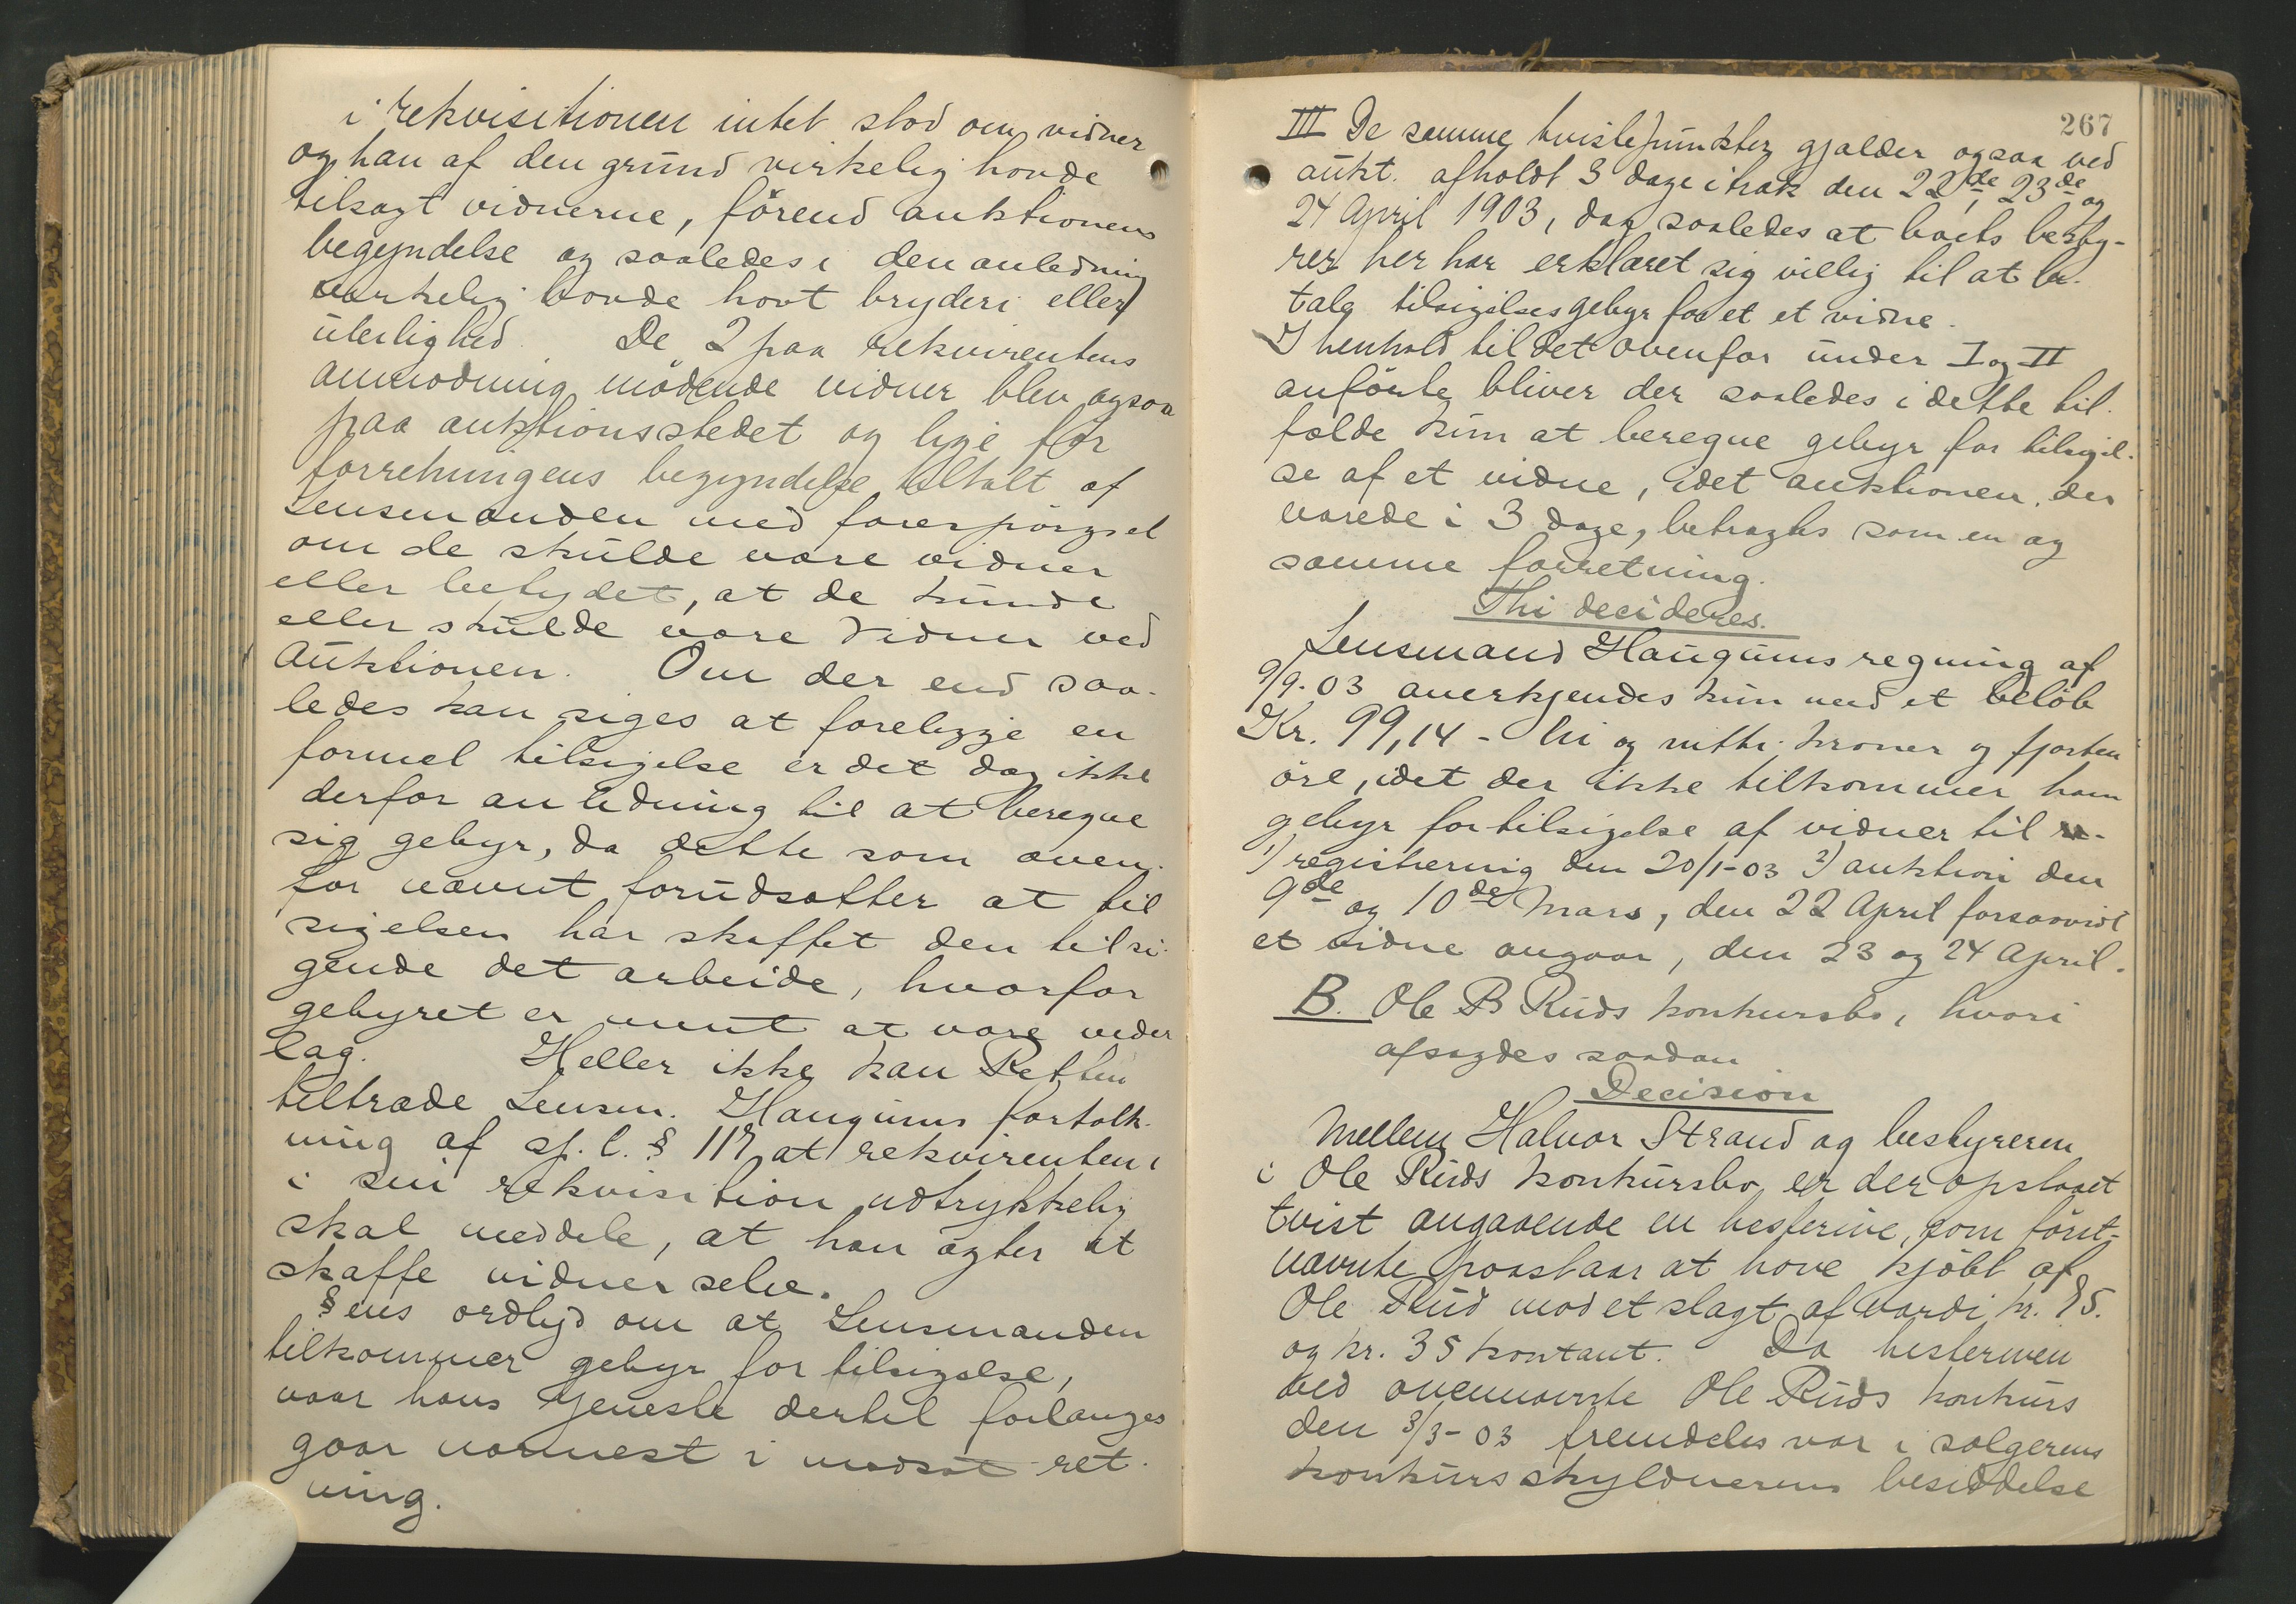 i rekvisitionen intet stod om vidner
og han af den grund virkelig havde
tilsagt vidnerne, förend auktionens
begyndelse og saaledes i den anledning
virkelig havde havt bryderi eller
uleilighed. De 2 paa rekvirentens
anmodning mödende vidner blev ogsaa
paa auktionsstedet og lige för
forretningens begyndelse tiltalt af
Lensmanden med forespörgsel
om de skulde være vidner
eller betydet, at de kunde
eller skulde være vidner ved
Auktionen. Om der end saa-
ledes kan siges at foreligge en
formel tilsigelse er det dog ikke
derfor anledning til at beregne
sig gebyr, da dette som oven-
for nævnt forudsætter at til
sigelsen har skaffet den tilsi-
gende det arbeide, hvorfor
gebyret er ment at være veder
lag. Heller ikke kan Retten
tiltræde Lensm. Haugums fortolk-
ning af sp. l. § 117, at rekvirenten i
i sin rekvisition udtrykkelig
skal meddele, at han agter at
skaffe vidner selv.
§ens ordlyd om at Lensmanden
tilkommer gebyr for tilsigelse,
naar hans tjeneste dertil forlanges
gaar nærmest i modsat ret-
ning.
267
III De samme tvistepunkter gjælder ogsaa ved
aukt. afholdt 3 dage i træk den 22de, 23de og
24 April 1903, dog saaledes at boets besty-
rer her har erklæret sig villig til at be-
tale tilsigelsesgebyr for et et vidne.
I henhold til det ovenfor under I og II
anförte bliver der saaledes i dette til-
fælde kun at beregne gebyr for tilsigel-
se af et vidne, idet auktionen, der
varede i 3 dage, betragtes som en og
samme forretning.
Thi decideres.
Lensmand Haugums regning af
9/9-03 anerkjendes kun med et belöb
Kr. 99,14 - ni og nitti kroner og fjorten
öre, idet der ikke tilkommer ham
gebyr for tilsigelse af vidner til re-
1) registrering den 20/1-03 2) auktion den
9de og 10de Mars, den 22 April forsaavidt
et vidne angaar, den 23 og 24 April.
B. Ole B Ruds konkursbo, hvori
afsagdes saadan
Decision
Mellem Halvor Strand og bestyreren
i Ole Ruds konkursbo er der opstaaet
tvist angaaende en hesterive, som först-
nævnte paastaar at have kjöbt af
Ole Rud mod et slagt af værdi kr. 15.
og kr. 35 kontant. Da hesteriven
ved ovennævnte Ole Ruds konkurs
den 3/3-03 fremdeles var i sælgerens
konkursskyldnerens besiddelse